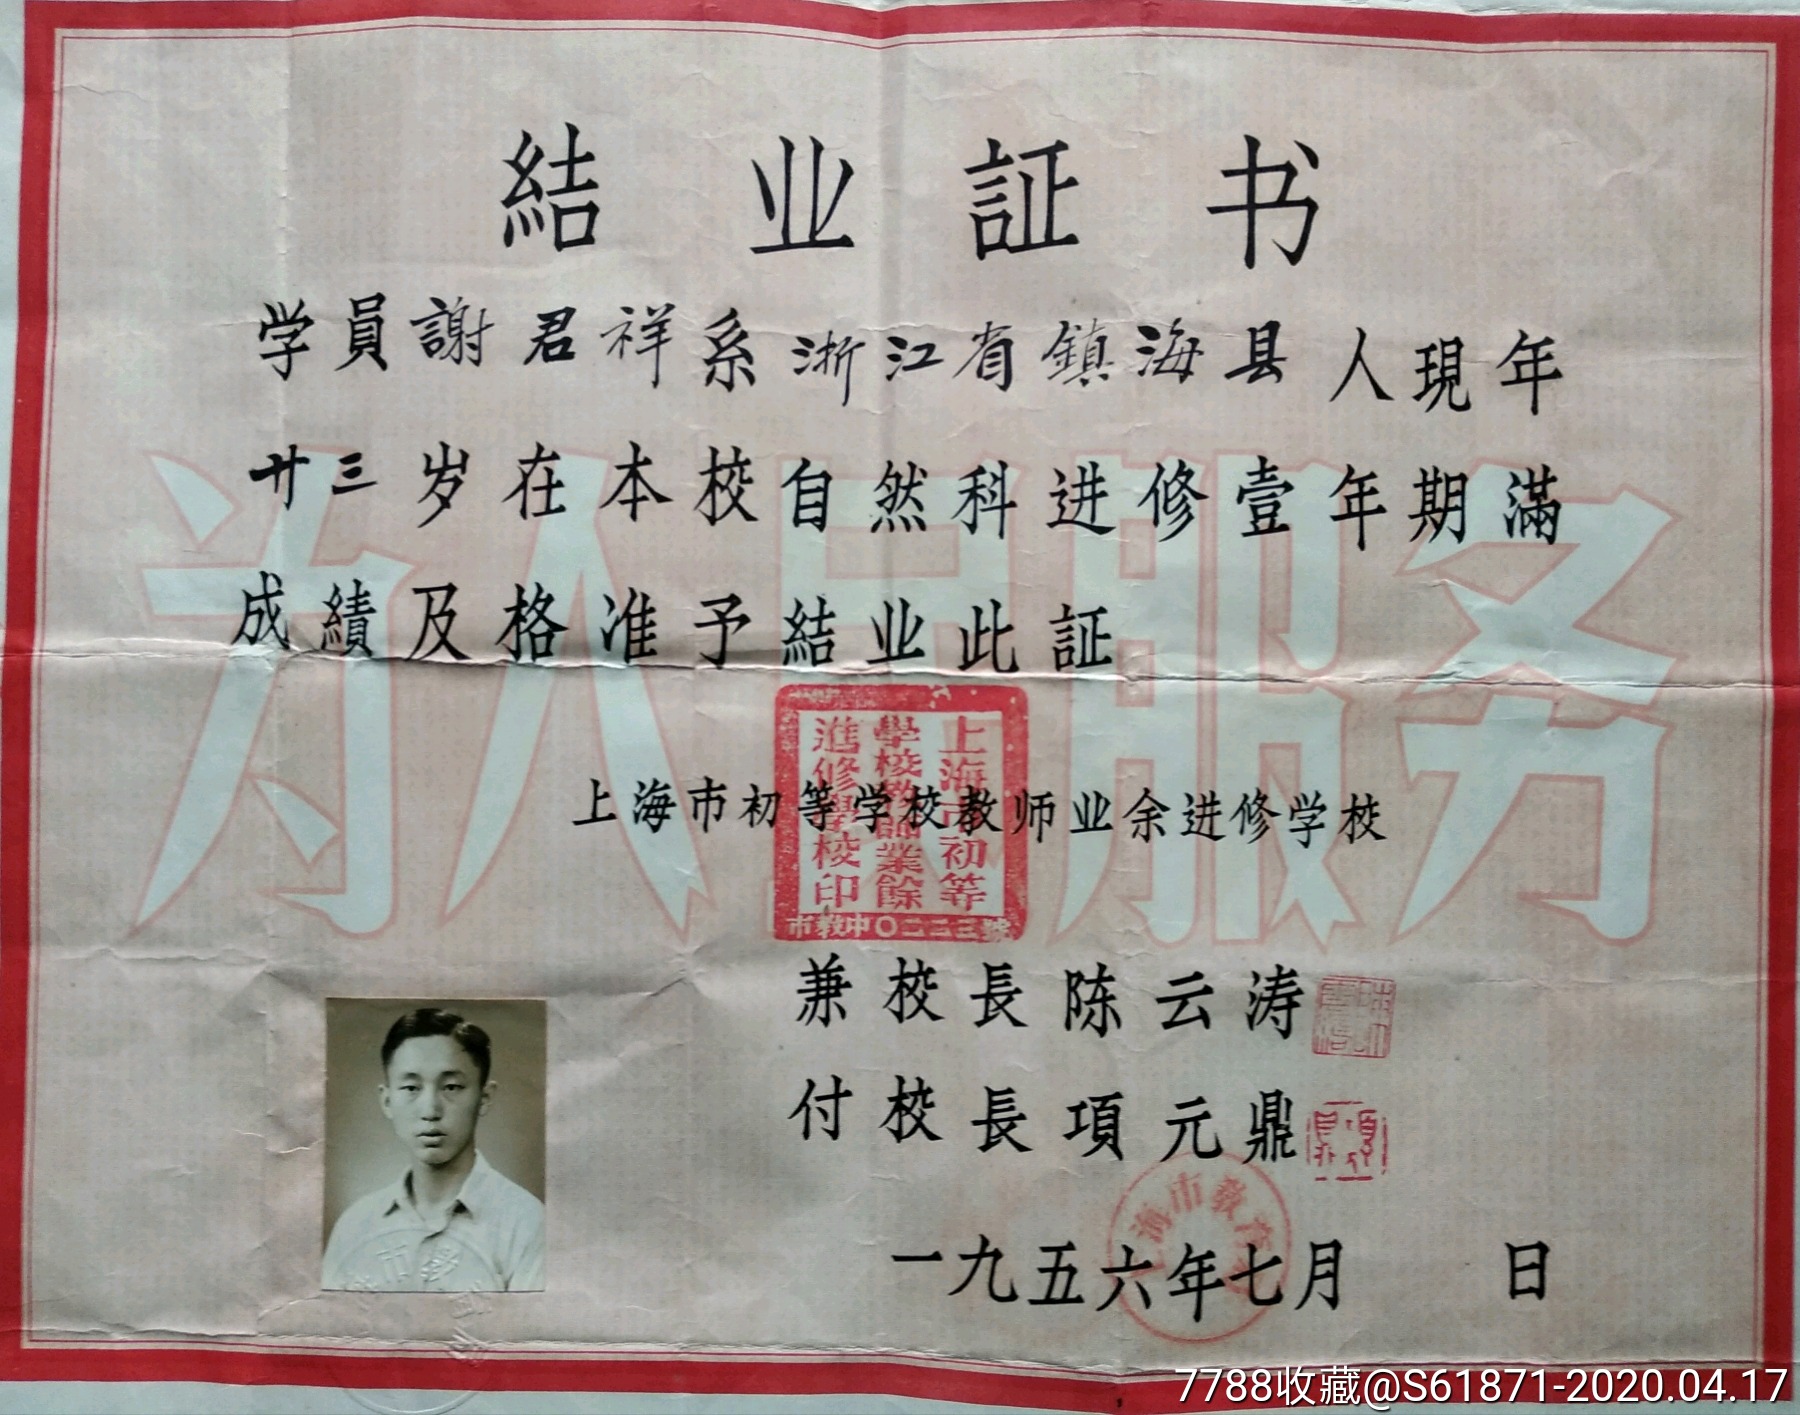 結业証书
学員謝君祥系浙江省鎮海县人現年
廿三岁在本校自然科进修壹年期滿
成績及格准予結业此証
为人民服务
上海市初等学校教师业余进修学校
上海市初等
學校教師業餘
進修學校印
市教中〇二二三號
兼校長陈云涛
付校長項元鼎
海市教育
一九五六年七月 日
7788收藏@S61871-2020.04.17